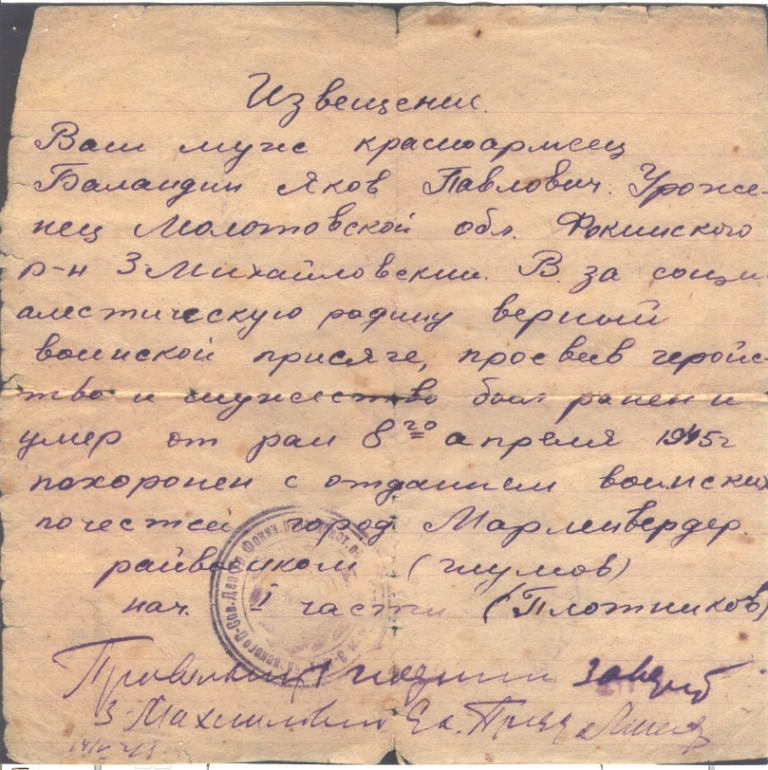 Извещение.
Ваш муж красноармеец
Баландин Яков Павлович. Уроже-
нец Молотовской обл. Фокинского
р-н З Михайловский. В. за соци-
алестическую родину верный
воинской присяге, проевев геройс-
тво и мужество был ранен и
умер от ран 8го апреля 1945г
похоронен с отданием воинских
почестей город Марленвердер.
райвоенком (глумов)
нач. II части (Плотников)
З-Михайловский